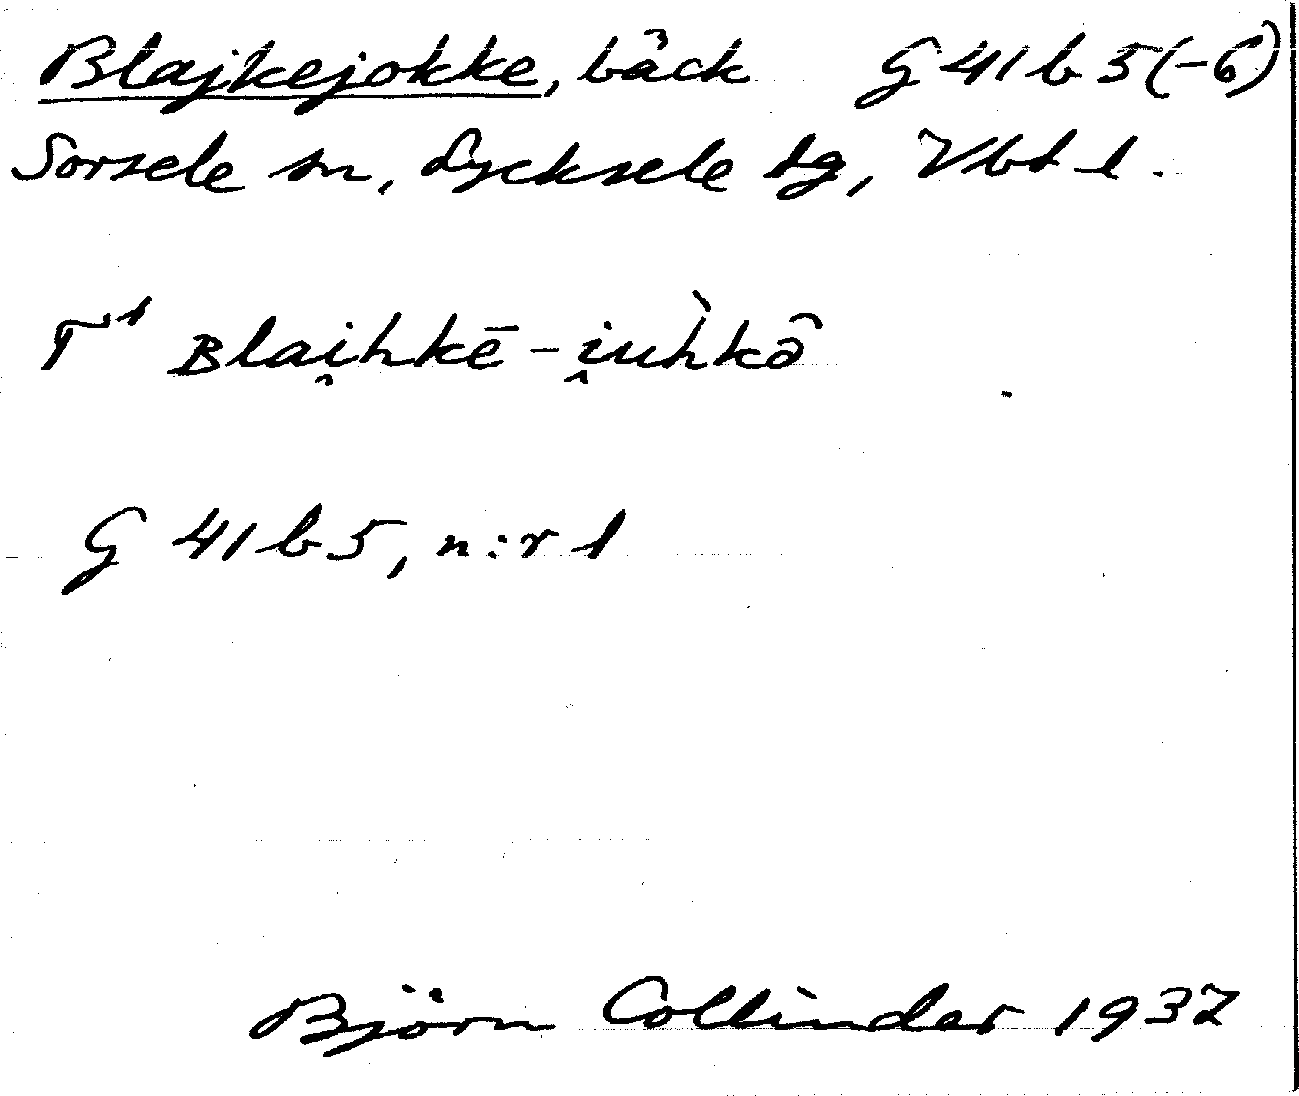 Blajkejokke, bäck G 41 b 5(-6)
Sorsele sn, Lycksele tg, Vbt l.
T¹ ʙlai̯hkē-i̯uh̀kô
G 41 b 5, n:r 1
Björn Collinder 1937